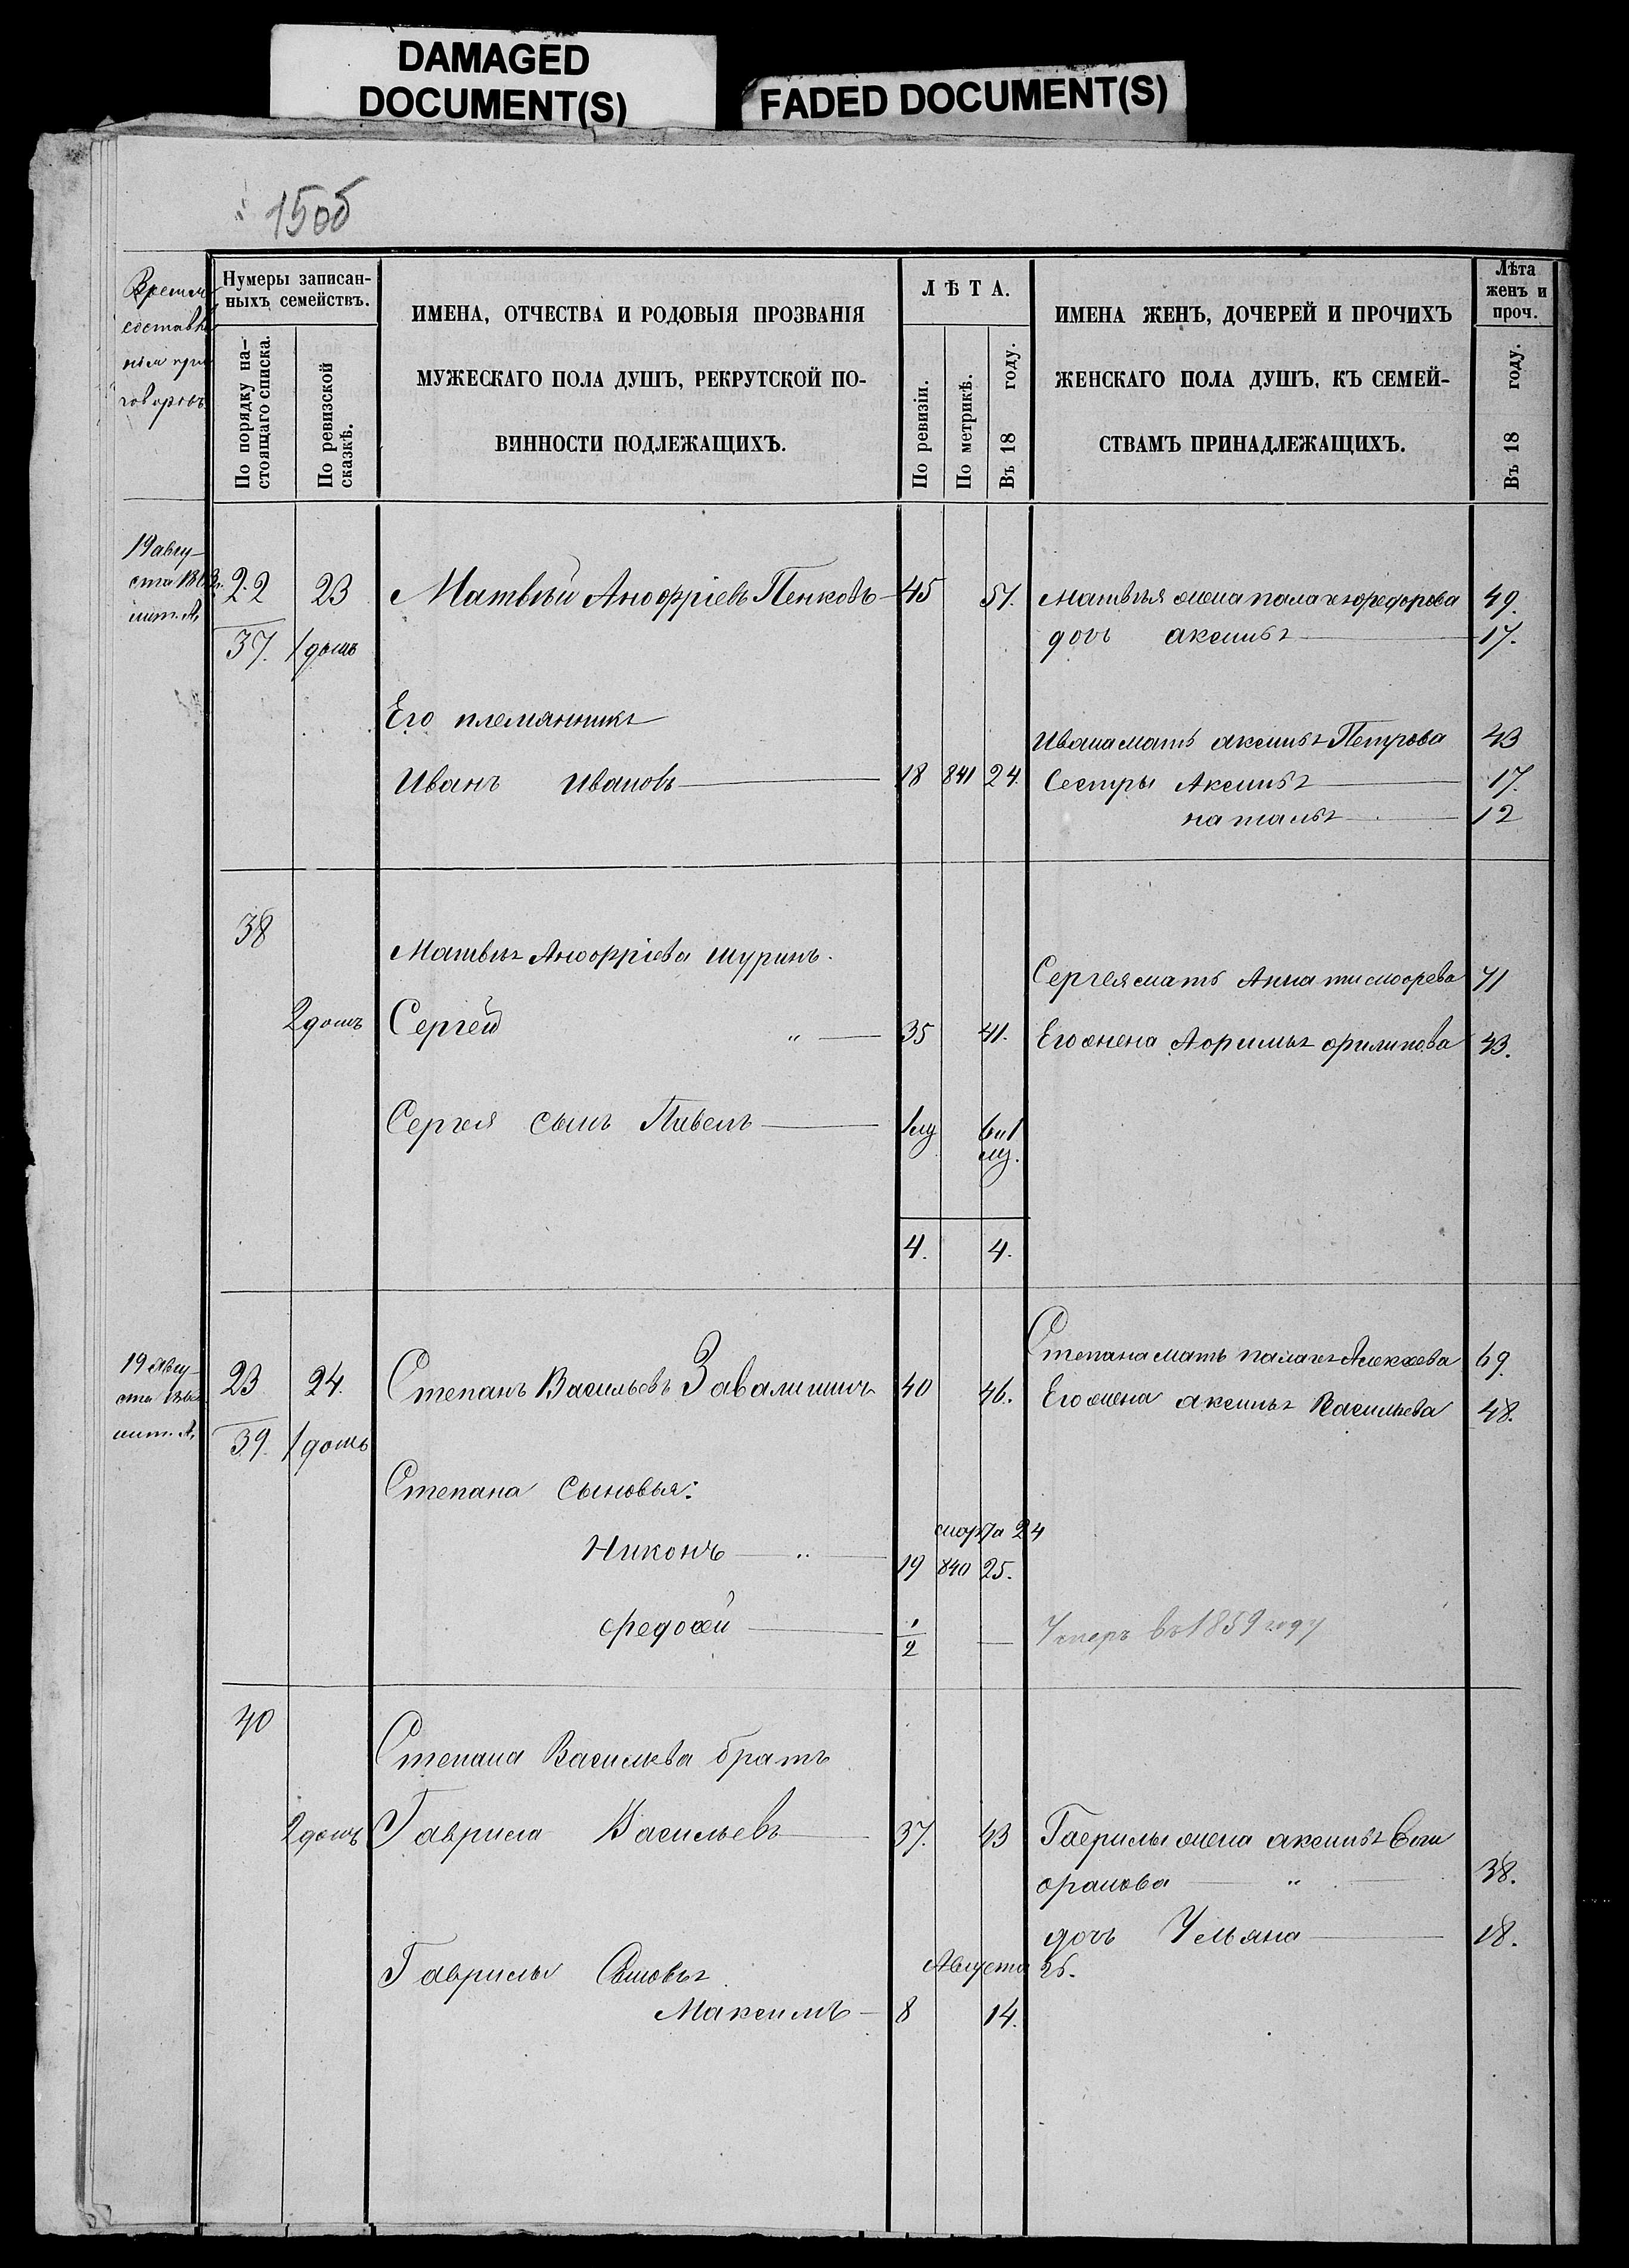 DAMAGED
DOCUMENT(S)
FADED DOCUMENT(S)
15об
Нумеры записан-
ныхъ семействъ.
По порядку на-
стоящаго списка.
По ревизской
сказкѣ.
ИМЕНА, ОТЧЕСТВА И РОДОВЫЯ ПРОЗВАНІЯ
МУЖЕСКАГО ПОЛА ДУШЪ, РЕКРУТСКОЙ ПО-
ВИННОСТИ ПОДЛЕЖАЩИХЪ.
ЛѢТА.
По ревизіи.
По метрикѣ.
Въ 18 году.
ИМЕНА ЖЕНЪ, ДОЧЕРЕЙ И ПРОЧИХЪ
ЖЕНСКАГО ПОЛА ДУШЪ, КЪ СЕМЕЙ-
СТВАМЪ ПРИНАДЛЕЖАЩИХЪ.
Лѣта
женъ и
проч.
Въ 18 году.
19 авгу-
ста
22 23 Матвѣй Анофріевъ Пенковъ 45 51. Матвѣя жена Палагѣя Федорова 49.
37. 1 домъ дочь аксинья 17.
Его племянникъ
Ивана мать аксинья Петрова 43
Иванъ Ивановъ 18 841 24. Сестры Аксинья 17.
наталья 12
38
Матвѣя Анофріева шуринъ.
Сергея мать Анна тимофѣева 71
2 домъ Сергей " 35 41. Его жена Афимья филипова 43.
Сергѣя сынъ Павелъ 1 му 6 и 1
мц.
4. 4.
Степана мать палагея Алексеева 69.
19 Авгу-
ста
23 24. Степанъ Васильевъ Завалишинъ 40 46. Его жена аксинья Васильева 48.
39. 1 домъ
Степана сыновья:
марта 24
Никонъ " 19 840 25.
федосѣй 1/2 — Умеръ въ 1859 году
40
Степана Васильева братъ
2 домъ Гаврила Васильевъ 37. 43 Гаврилы жена аксинья Епи
фанова " 38.
дочь Ульяна 18.
Гаврилы Сыновья Августа 26.
Максимъ 8 14.